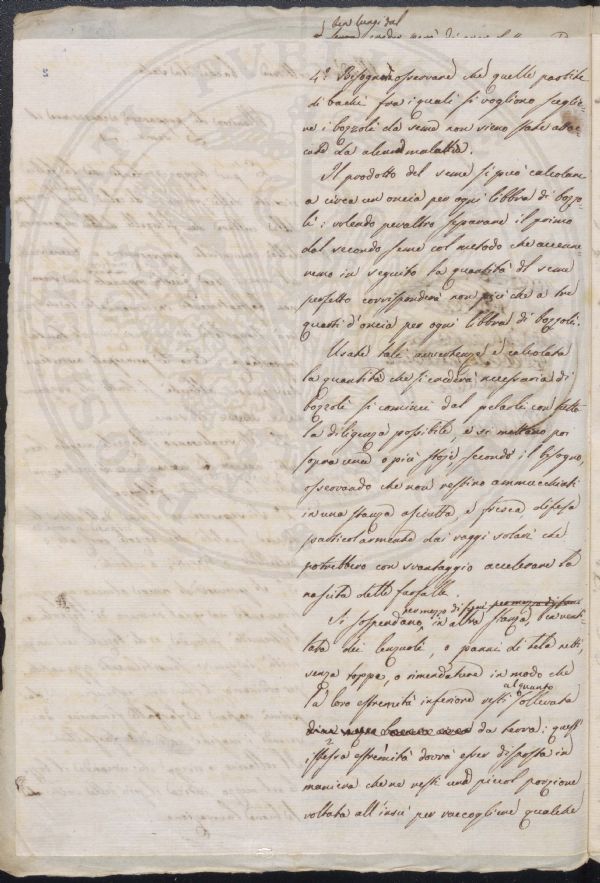 ben lungi dal
4.° Bisogna osservare che quelle partite
di bachi fra i quali si vogliono sceglie-
re i bozzoli da seme non sieno state attac-
cate da alcuna malattia.
Il prodotto del seme si può calcolare
a circa un'oncia per ogni libbra di bozzo-
li: volendo peraltro separare il primo
dal secondo seme col metodo che accenne-
remo in seguito la quantità di seme
perfetto corrisponderà non più che a tre
quarti d'oncia per ogni libbra di bozzoli.
Usate tali avvertenze e calcolata
la quantità che si crederà necessaria di
bozzoli si cominci dal pelarli con tutta
la diligenza possibile, e si mettano poi
sopra una o più stoje secondo il bisogno,
osservando che non restino ammucchiati
in una stanza asciutta, e fresca, difesa
particolarmente dai raggi solari che
potrebbero con svantaggio accelerare la
nascita delle farfalle.
per mezzo di funi
Si sospendano, in altra stanza, ben venti-
lata dei lenzuoli, o panni di tela netti,
senza toppe, o rimendature in modo che
alquanto
la loro estremità inferiore resti sollevata
da terra: quest'
istessa estremità dovrà esser disposta in
maniera che ne resti una piccol porzione
voltata all'insù per raccogliere qualche